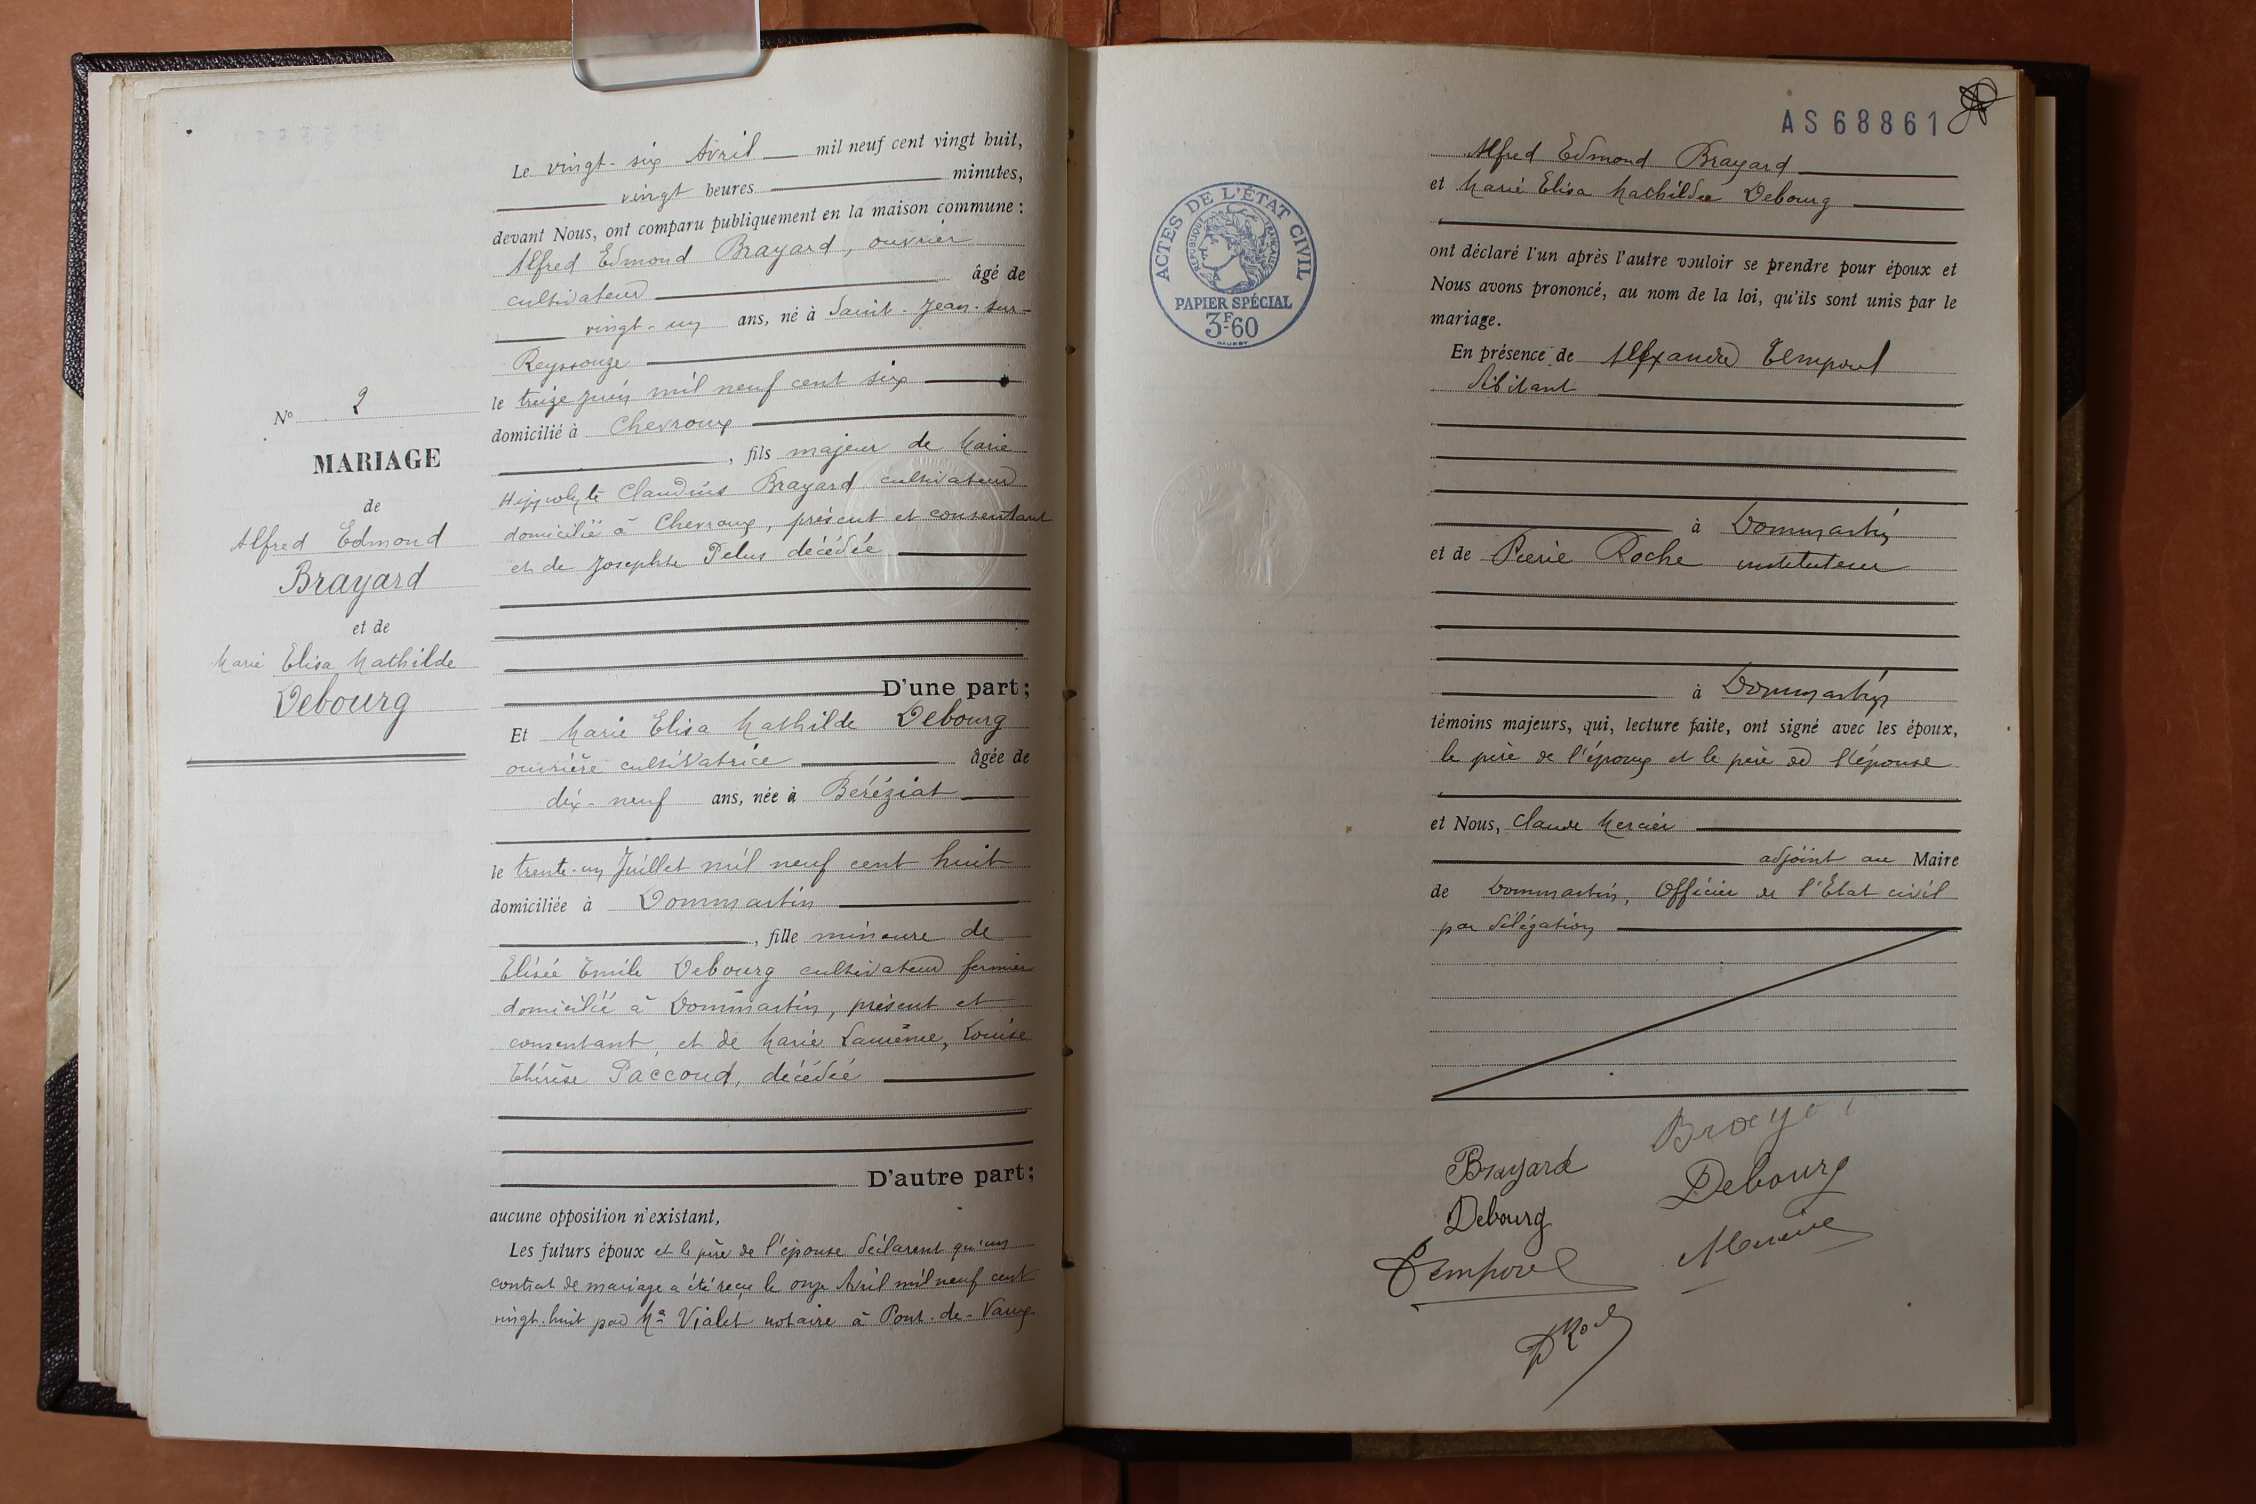 Le vingt-six Avril mil neuf cent vingt huit,
vingt heures minutes,
devant Nous, ont comparu publiquement en la maison commune :
Alfred Edmond Brayard, ouvrier
cultivateur âgé de
vingt-un ans, né à Saint-Jean-sur-
Reyssouze
le treize juin mil neuf cent six
domicilié à Chevroux
, fils majeur de Marie
Hippolyte Claudius Brayard cultivateur
domicilié à Chevroux, présent et consentant
et de Josephte Pelus décédée
D'une part;
Et Marie Elisa Mathilde Debourg
ouvrière cultivatrice âgée de
dix-neuf ans, née à Béréziat
le trente-un Juillet mil neuf cent huit
domiciliée à Dommartin
, fille mineure de
Elisée Emile Debourg cultivateur fermier
domicilié à Dommartin, présent et
consentant, et de Marie Laurence, Louise
Thérèse Paccoud, décédée
D'autre part;
aucune opposition n'existant,
Les futurs époux et le père de l'épouse déclarent qu'un
contrat de mariage a été reçu le onze Avril mil neuf cent
vingt-huit par Me Vialet notaire à Pont-de-Vaux
No 2
MARIAGE
de
Alfred Edmond
Brayard
et de
Marie Elisa Mathilde
Debourg
AS68861
Alfred Edmond Brayard
et Marie Elisa Mathilde Debourg
ont déclaré l'un après l'autre vouloir se prendre pour époux et
Nous avons prononcé, au nom de la loi, qu'ils sont unis par le
mariage.
En présence de Alexandre Temporel
débitant
à Dommartin
et de Pierre Roche instituteur
à Dommartin
témoins majeurs, qui, lecture faite, ont signé avec les époux,
le père de l'époux et le père de l'épouse
et Nous, Claude Mercier
adjoint au Maire
de Dommartin, Officier de l'Etat civil
par délégation
Brayard
Debourg
Temporel
Debourg
Mercier
ACTES DE L'ÉTAT CIVIL
RÉPUBLIQUE FRANÇAISE
PAPIER SPÉCIAL
3F60